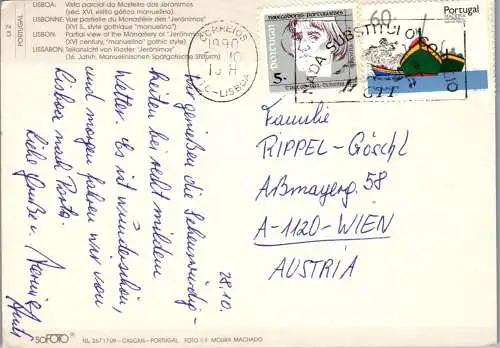 LISBOA: Vista parcial do Mosteiro dos Jerónimos
(séc. XVI, estilo gótico manuelino)
LISBONNE: Vue partielle du Monastère des "Jerónimos"
(XVI S., style gothique "manuelino")
LISBON: Partial view of the Monastery of "Jerónimos"
(XVI century, "manuelino" gothic style)
LISSABON: Teilansicht von Kloster "Jerónimos"
(16. Jahrh. Manuelinischen Spätgotische Stilform)
LX 2
PORTUGAL
CORREIOS
1990
10
LISBOA
navegadores portugueses
portugal
5.-
60.-
Portugal
NADA SUBSTITUI
CTT
28.10.
Wir genießen die Sehenswürdig-
keiten bei recht mildem
Wetter. Es ist wunderschön,
und morgen fahren wir von
Lissabon nach Porto.
Liebe Grüße v.
Familie
RIPPEL-Göschl
Aßmayerg. 58
A-1120-WIEN
AUSTRIA
SOFOTO
TEL. 2671709 - CASCAIS - PORTUGAL FOTO I.F. MOURA MACHADO